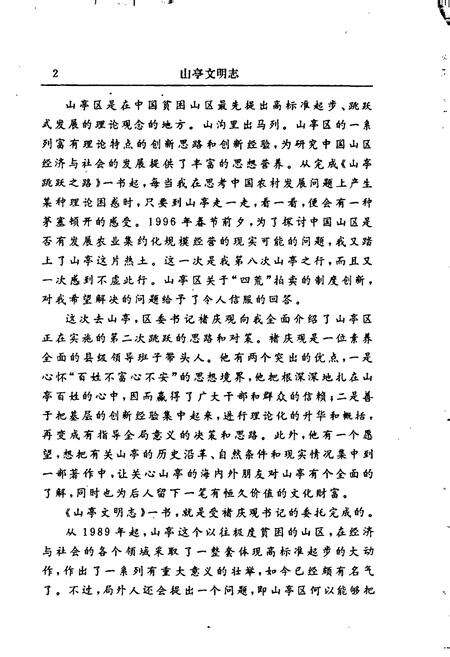 2 山亭文明志
山亭区是在中国贫困山区最先提出高标准起步、跳跃
式发展的理论观念的地方。山沟里出马列。山亭区的一系
列富有理论特点的创新思路和创新经验,为研究中国山区
经济与社会的发展提供了丰富的思想营养。从完成《山亭
跳跃之路》一书起,每当我在思考中国农村发展问题上产生
某种理论困惑时,只要到山亭走一走,看一看,便会有一种
茅塞顿开的感受。1996年春节前夕,为了探讨中国山区是
否有发展农业集约化规模经营的现实可能的问题,我又踏
上了山亭这片热土。这一次是我第八次山亭之行,而且又
一次感到不虚此行。山亭区关于“四荒”拍卖的制度创新,
对我希望解决的问题给予了令人信服的回答。
这次去山亭,区委书记褚庆观向我全面介绍了山亭区
正在实施的第二次跳跃的思路和对策。褚庆观是一位素养
全面的县级领导班子带头人。他有两个突出的优点,一是
心怀“百姓不富心不安”的思想境界,他把根深深地扎在山
亭百姓的心中,因而赢得了广大干部和群众的信赖;二是善
于把基层的创新经验集中起来,进行理论化的升华和概括,
再变成有指导全局意义的决策和思路。此外,他有一个愿
望,想把有关山亭的历史沿革、自然条件和现实情况集中到
一部著作中,让关心山亭的海内外朋友对山亭有个全面的
了解,同时也为后人留下一笔有恒久价值的文化财富。
《山亭文明志》一书,就是受褚庆观书记的委托完成的。
从1989年起,山亭这个以往极度贫困的山区,在经济
与社会的各个领域采取了一整套体现高标准起步的大动
作,作出了一系列有重大意义的壮举,如今已经颇有名气
了。不过,局外人还会提出一个问题,即山亭区何以能够把